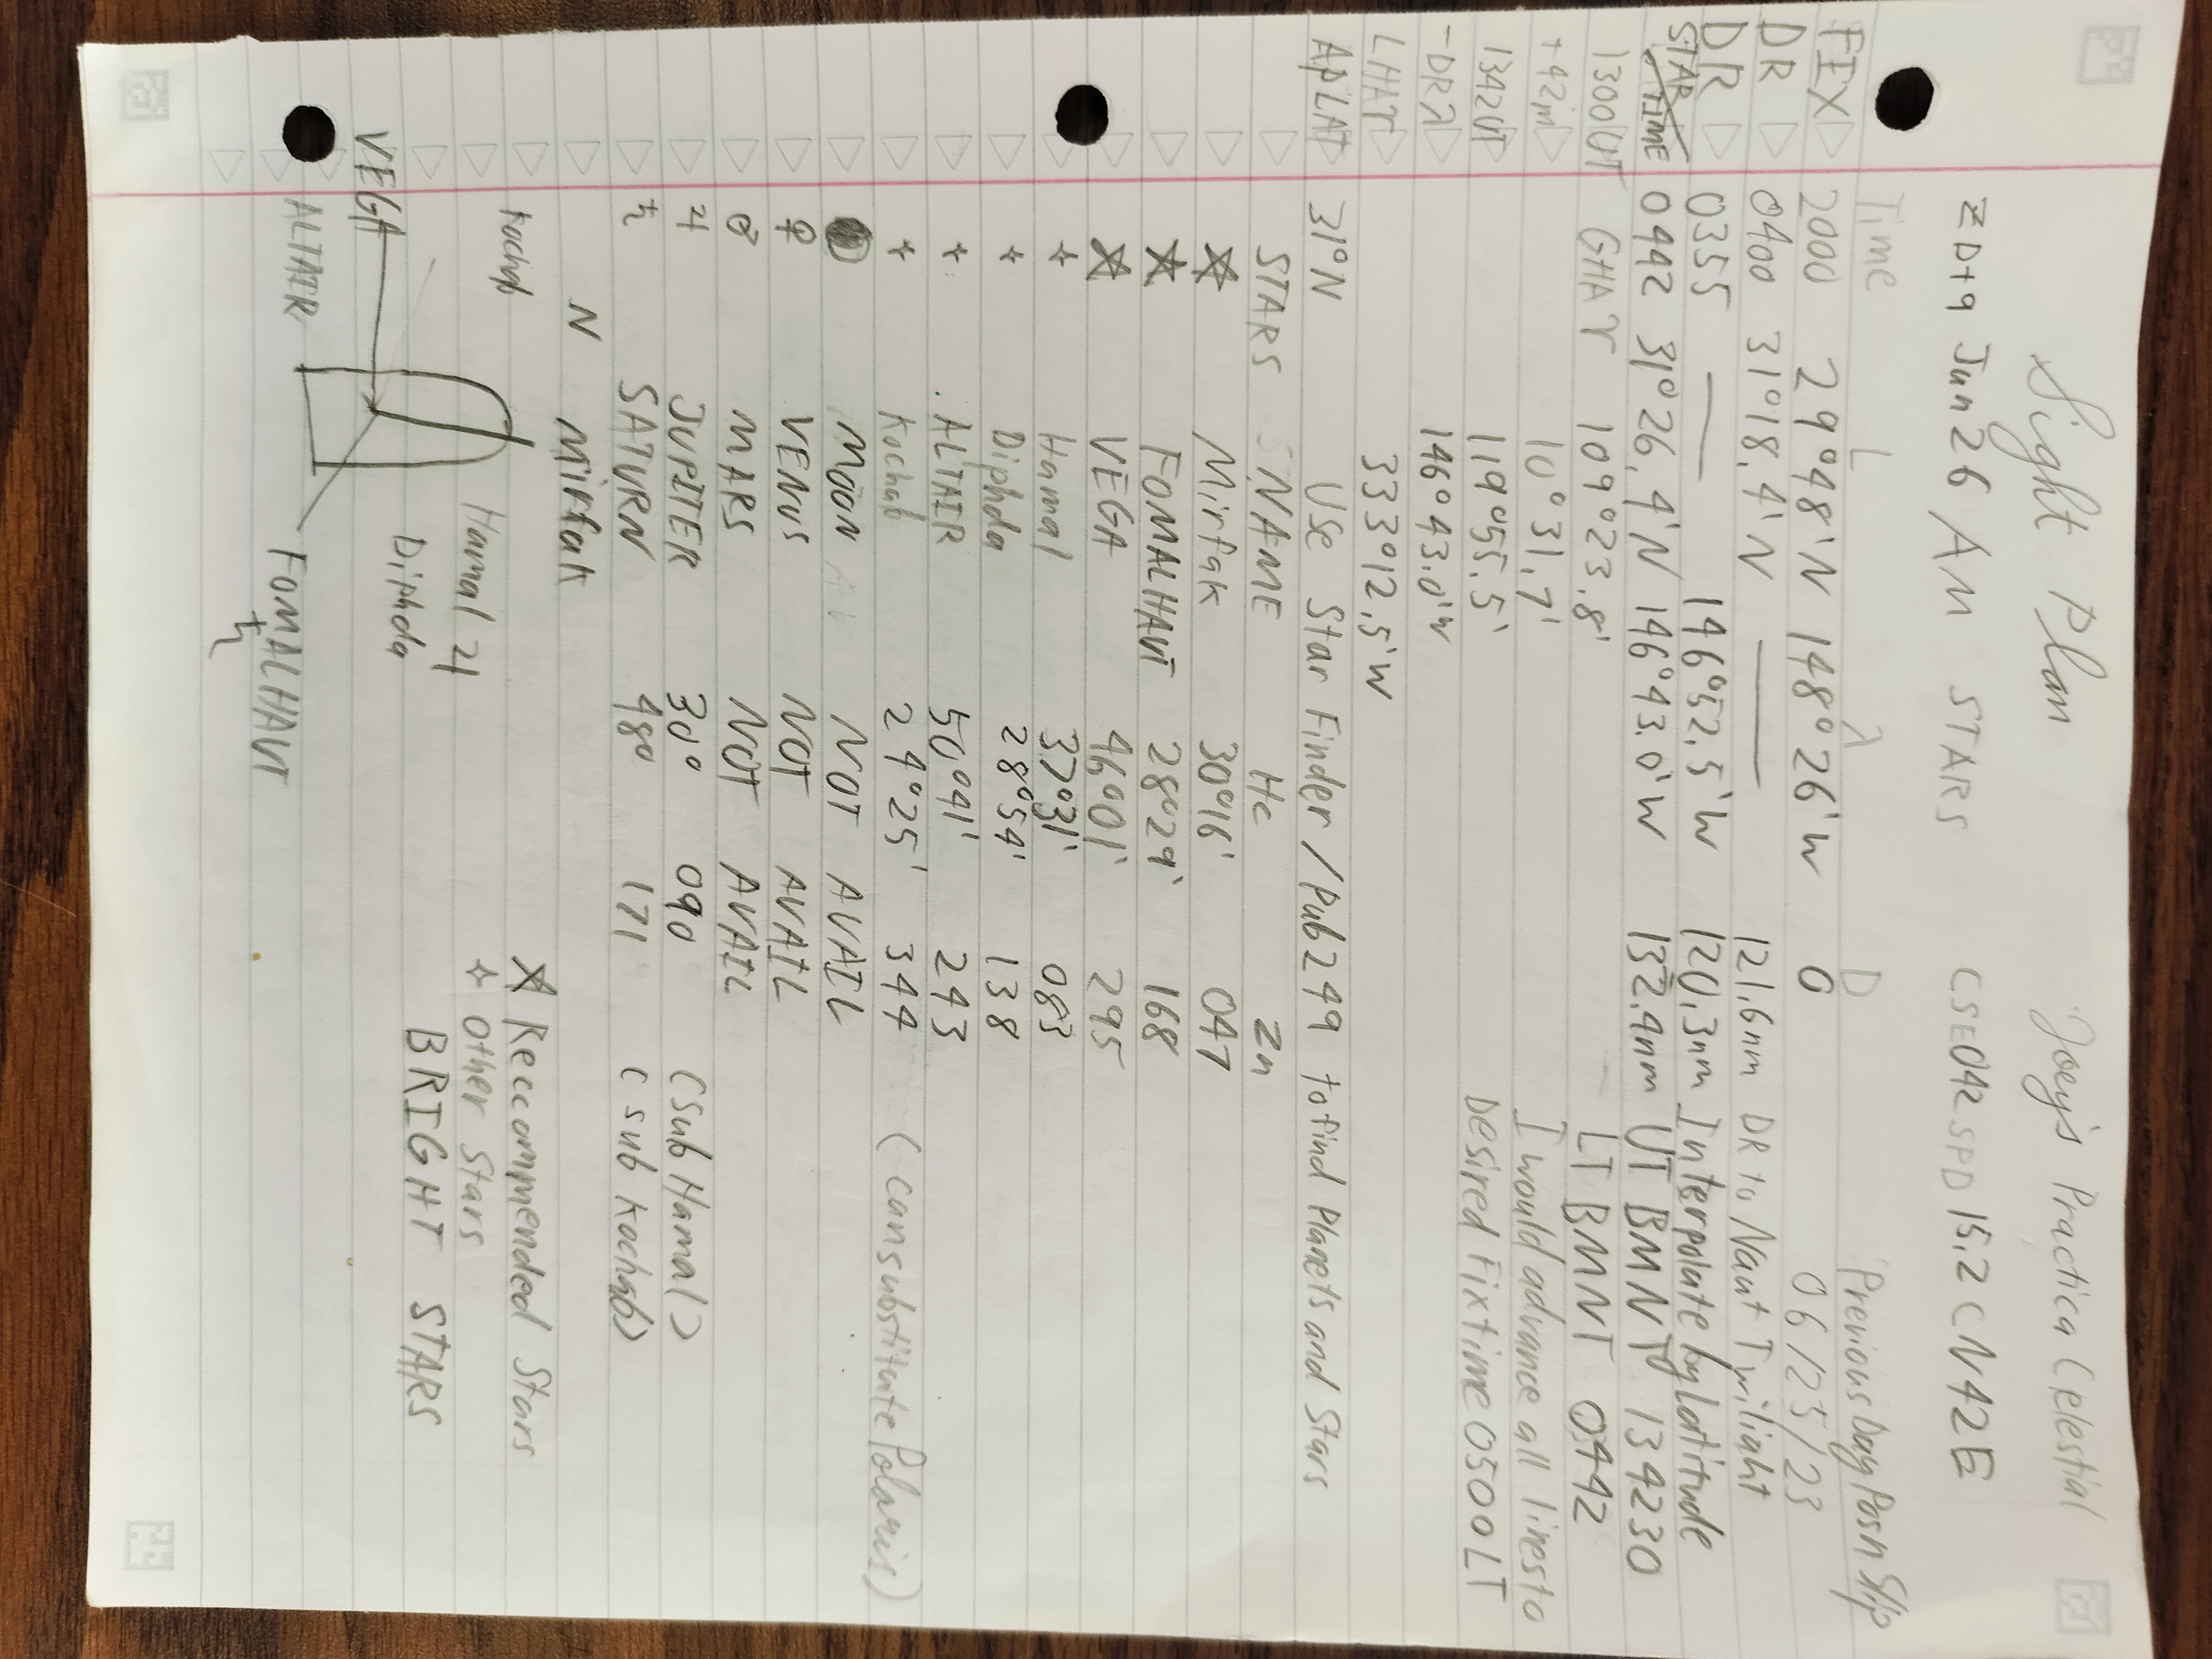 Sight Plan "Joey's Practica Celestial
ZD+9 Jun 26 AM STARS CSE042 SPD 15.2 C N42E
Time L λ D Previous Day Posn Slip
FIX 2000 29°48'N 148°26'W 0 06/25/23
DR 0400 31°18.4'N — 121.6nm DR to Naut Twilight
DR 0355 — 146°52.5'W 120.3nm Interpolate by latitude
STAR TIME 0442 31°26.4'N 146°43.0'W 132.4nm UT BMNT 134230
1300UT GHA♈ 109°23.8' LT BMNT 0442
+42m 10°31.7' I would advance all lines to
1342UT 119°55.5' Desired Fix time 0500LT
-DRλ 146°43.0'W
LHA♈ 333°12.5'W
ApLAT 31°N Use Star Finder/Pub249 to find Planets and Stars
STARS NAME Hc Zn
Mirfak 30°16' 047
FOMALHAUT 28°29' 168
VEGA 46°01' 295
Hamal 37°31' 083
Diphda 28°54' 138
ALTAIR 50°41' 243
Kochab 24°25' 344 (can substitute Polaris)
MOON NOT AVAIL
♀ VENUS NOT AVAIL
♂ MARS NOT AVAIL
♃ JUPITER 30° 090 (Sub Hamal)
♄ SATURN 48° 171 (sub Kochab)
N Mirfak
Kochab Reccommended Stars
Hamal ♃ Other Stars
Diphda BRIGHT STARS
VEGA
ALTAIR FOMALHAUT
♄